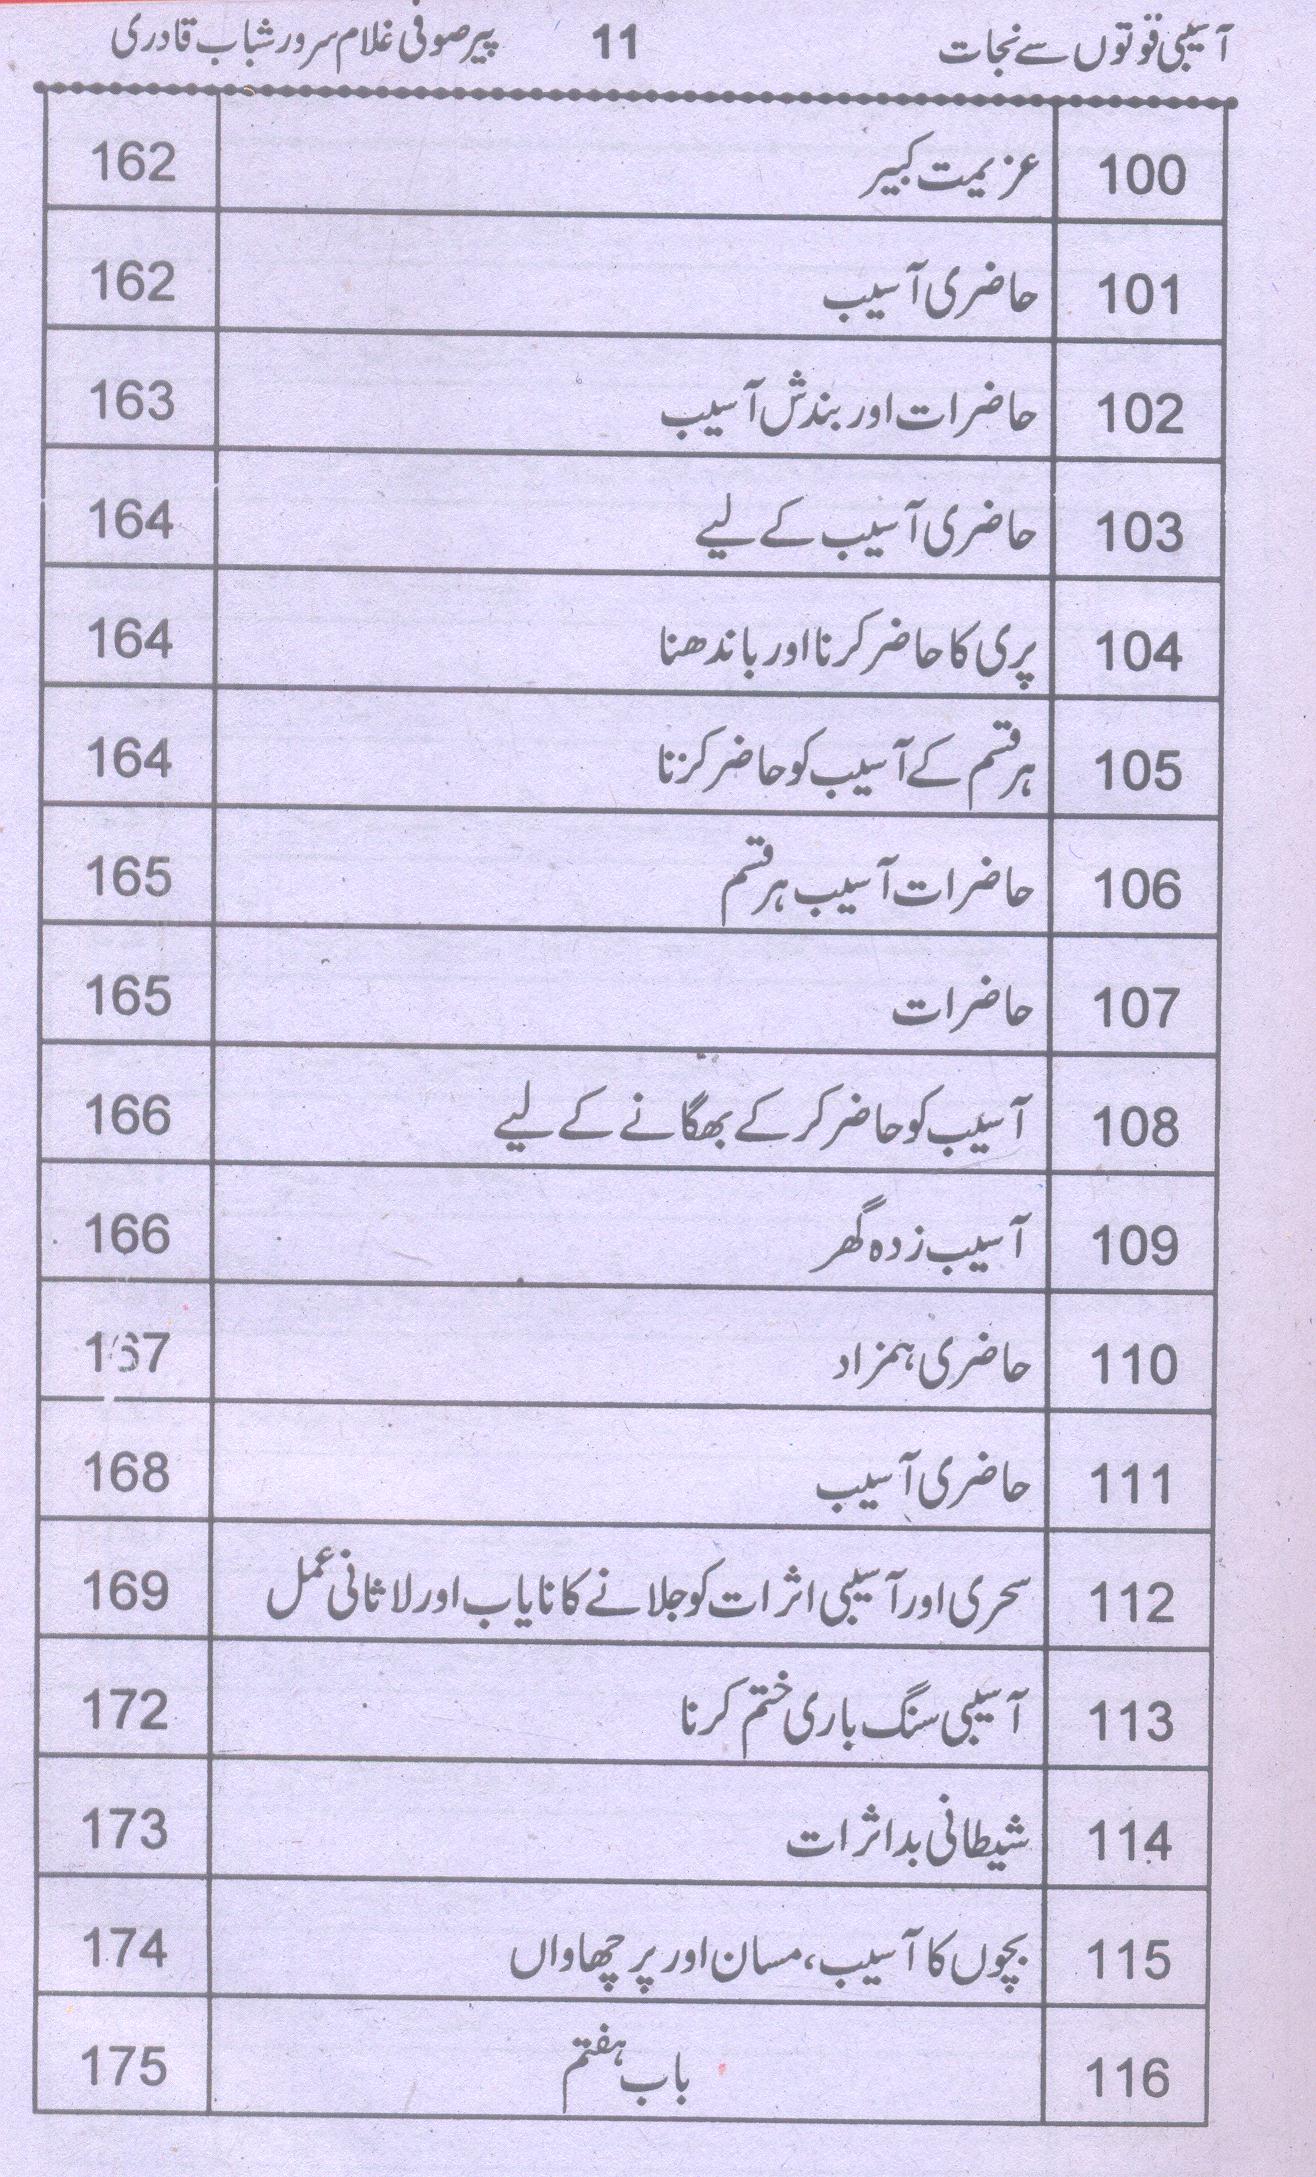 آسیبی قوتوں سے نجات 11 پیر صوفی غلام سرور شباب قادری
100 عزیمت کبیر 162
101 حاضری آسیب 162
102 حاضرات اور بندش آسیب 163
103 حاضری آسیب کے لیے 164
104 پری کا حاضر کرنا اور باندھنا 164
105 ہر قسم کے آسیب کو حاضر کرنا 164
106 حاضرات آسیب ہر قسم 165
107 حاضرات 165
108 آسیب کو حاضر کر کے بھگانے کے لیے 166
109 آسیب زدہ گھر 166
110 حاضری ہمزاد 167
111 حاضری آسیب 168
112 سحری اور آسیبی اثرات کو جلانے کا نایاب اور لاثانی عمل 169
113 آسیبی سنگ باری ختم کرنا 172
114 شیطانی بد اثرات 173
115 بچوں کا آسیب، مسان اور پرچھاواں 174
116 باب ہفتم 175